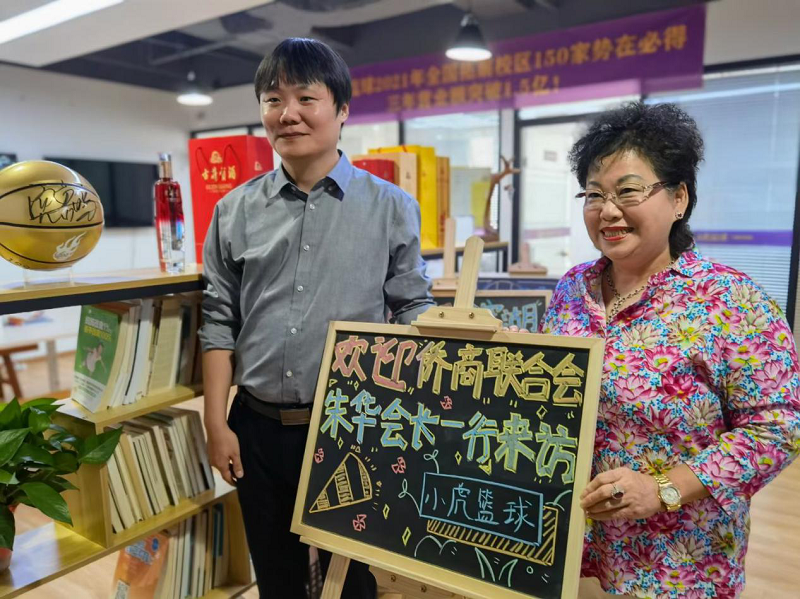 2021年全国 校区150家势在必得
三年营业额突破1.5亿！
欢迎侨商联合会
朱华会长一行来访
小虎篮球